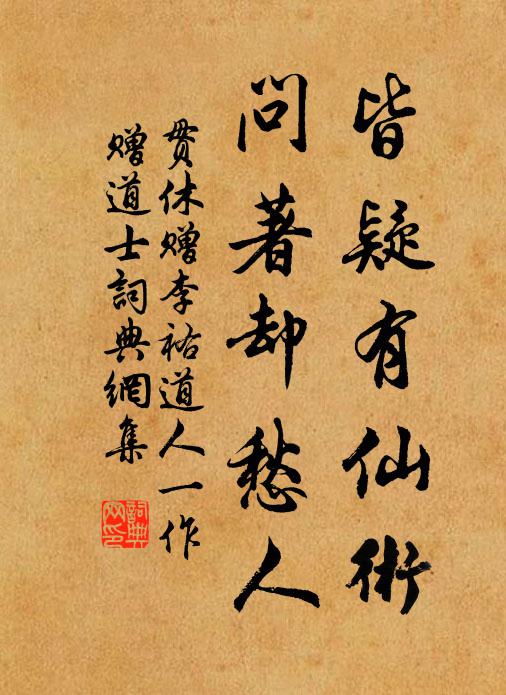 皆疑有仙術
問著却愁人
贯休赠李祐道人一作
赠道士詞典網集
詞典網印